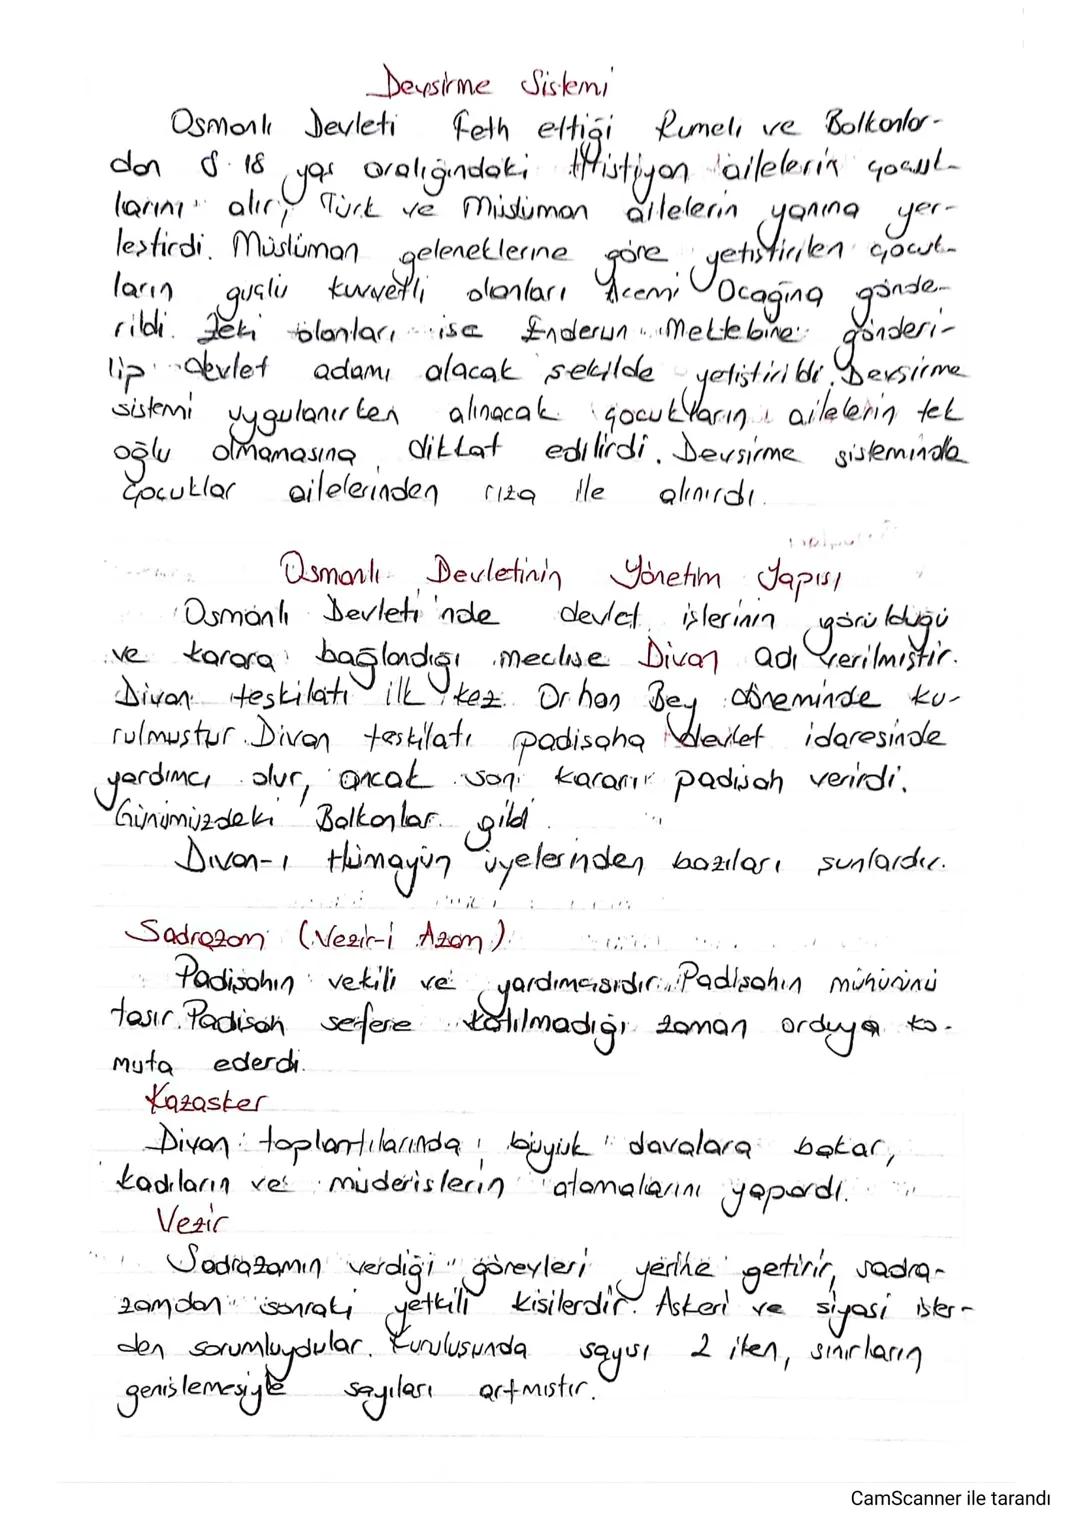 Devşirme Sistemi
Osmanlı Devleti feth ettiği Rumeli ve Balkanlar-
dan 8-18 yaş aralığındaki Hristiyan ailelerin çocuk-
larını alır, Türk ve Müslüman ailelerin yanına yer-
leştirdi. Müslüman geleneklerine göre yetiştirilen çocuk-
ların güçlü kuvvetli olanları Acemi Ocağına gönde-
rildi. Zeki olanları ise Enderun Mektebine gönderi-
lip devlet adamı olacak şekilde yetiştirildi. Devşirme
sistemi uygulanırken alınacak çocukların ailelerin tek
oğlu olmamasına dikkat edilirdi. Devşirme sisteminde
çocuklar ailelerinden rıza ile alınırdı.
Osmanlı Devletinin Yönetim Yapısı
Osmanlı Devleti'nde devlet işlerinin görüldüğü
ve karara bağlandığı meclise Divan adı verilmiştir.
Divan teşkilatı ilk kez Orhan Bey döneminde ku-
rulmuştur. Divan teşkilatı padişaha devlet idaresinde
yardımcı olur, ancak son kararı padişah verirdi.
Günümüzdeki Balkonlar gibi
Divan-ı Hümayün üyelerinden bazıları şunlardır.
Sadrazam (Vezir-i Azam)
Padişahın vekili ve yardımcısıdır. Padişahın mühürünü
taşır. Padişah sefere katılmadığı zaman orduya ko-
muta ederdi.
Kazasker
Divan toplantılarında büyük davalara bakar,
kadıların ve müderislerin atamalarını yapardı.
Vezir
Sadrazamın verdiği görevleri yerine getirir, sadra-
zamdan sonraki yetkili kişilerdir. Askeri ve siyasi işler-
den sorumluydular. Kuruluşunda sayısı 2 iken, sınırların
genişlemesiyle sayıları artmıştır.
CamScanner ile tarandı